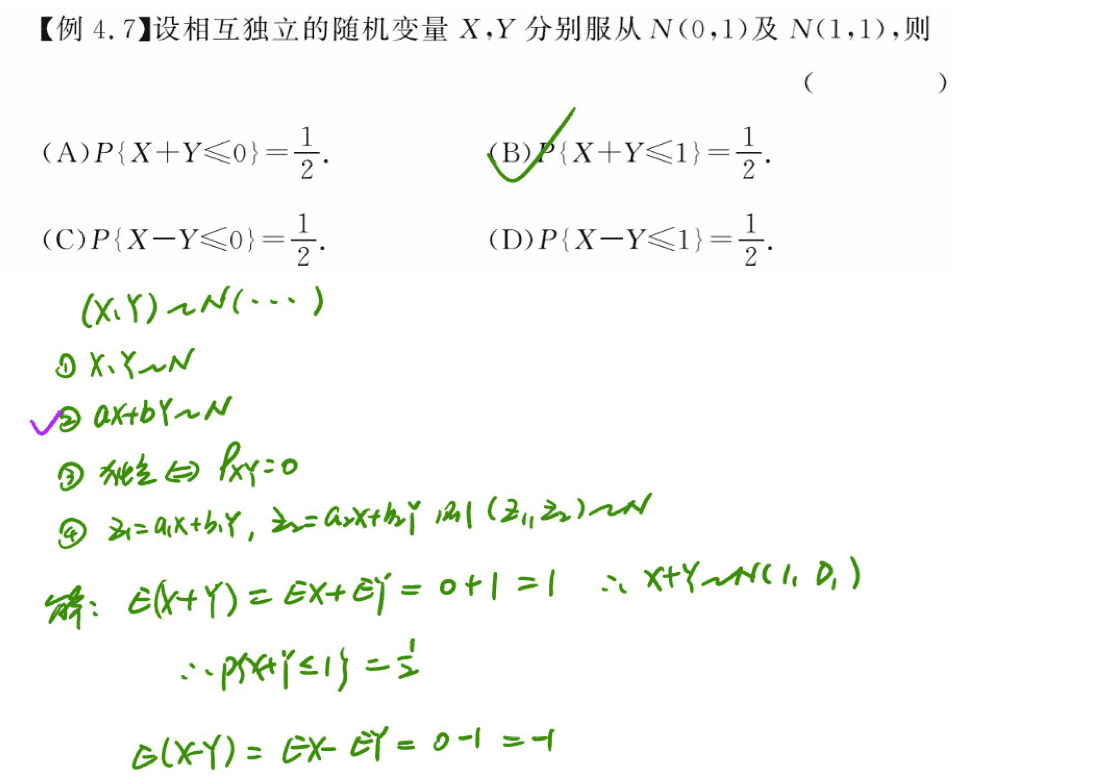 【例 4.7】设相互独立的随机变量 X,Y 分别服从 N(0,1)及 N(1,1),则
(    )
(A)P{X+Y≤0}=1/2. (B)P{X+Y≤1}=1/2.
(C)P{X-Y≤0}=1/2. (D)P{X-Y≤1}=1/2.
(X、Y)~N(···)
① X、Y~N
② aX+bY~N
③ 独立 ⇔ ρXY=0
④ Z₁=a₁X+b₁Y, Z₂=a₂X+b₂Y 则 (Z₁,Z₂)~N
解: E(X+Y)=EX+EY=0+1=1 ∴ X+Y~N(1, D₁)
∴P{X+Y≤1}=1/2
E(X-Y)=EX-EY=0-1=-1